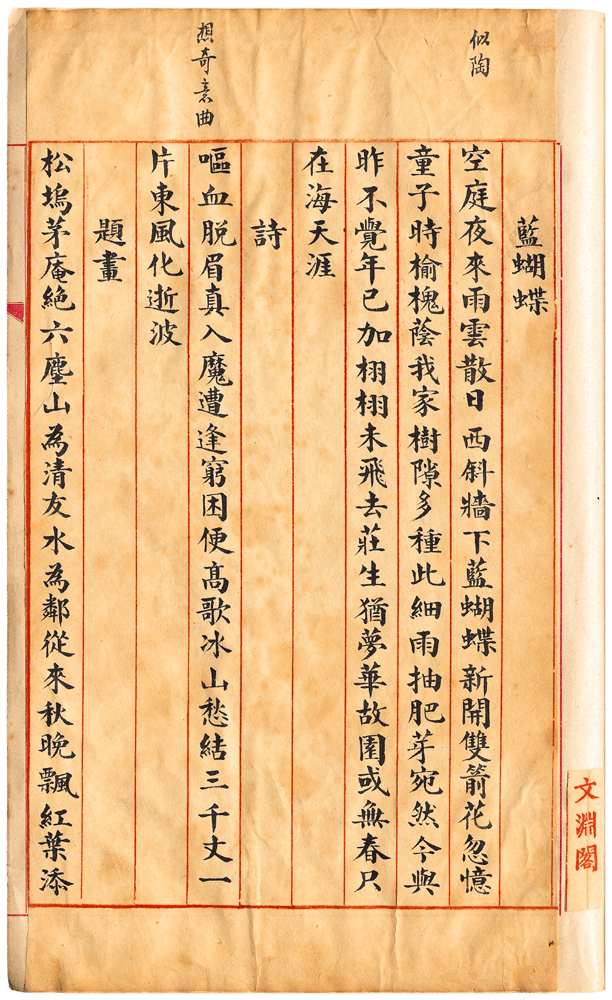 文淵閣
似陶
藍蝴蝶
空庭夜來雨雲散日西斜牆下藍蝴蝶新開雙箭花忽憶
童子時榆槐蔭我家樹隙多種此細雨抽肥芽宛然今與
昨不覺年已加栩栩未飛去莊生猶夢華故園或無春只
在海天涯
詩
想奇意曲
嘔血脫眉真入魔遭逢窮困便高歌冰山愁結三千丈一
片東風化逝波
題畫
松塢茅庵絕六塵山為清友水為鄰從來秋晚飄紅葉添